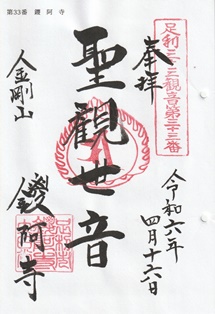 第33番 鑁阿寺
足利三十三観音第三十三番
奉拝
令和六年四月十六日
聖觀世音
金剛山
鑁阿寺